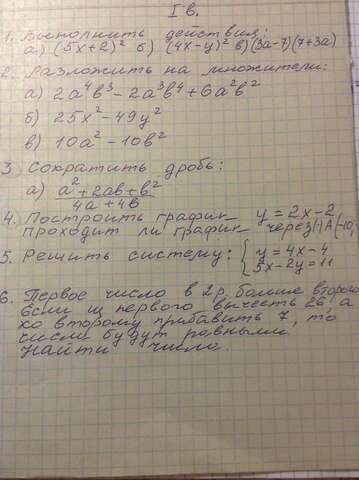 I в.
1. Выполнить действия:
а) (5x+2)² б) (4x-y)² в) (3a-7)(7+3a)
2. Разложить на множители:
а) 2a⁴b³-2a³b⁴+6a²b²
б) 25x²-49y²
в) 10a²-10b²
3 Сократить дробь:
а) a²+2ab+b²
4a+4b
4. Построить график y=2x-2
проходит ли график через (·)A(-10,
5. Решить систему: { y=4x-4
5x-2y=11
6. Первое число в 2 р. больше второго
если из первого вычесть 26, а
ко второму прибавить 7, то
числа будут равными.
Найти числа.